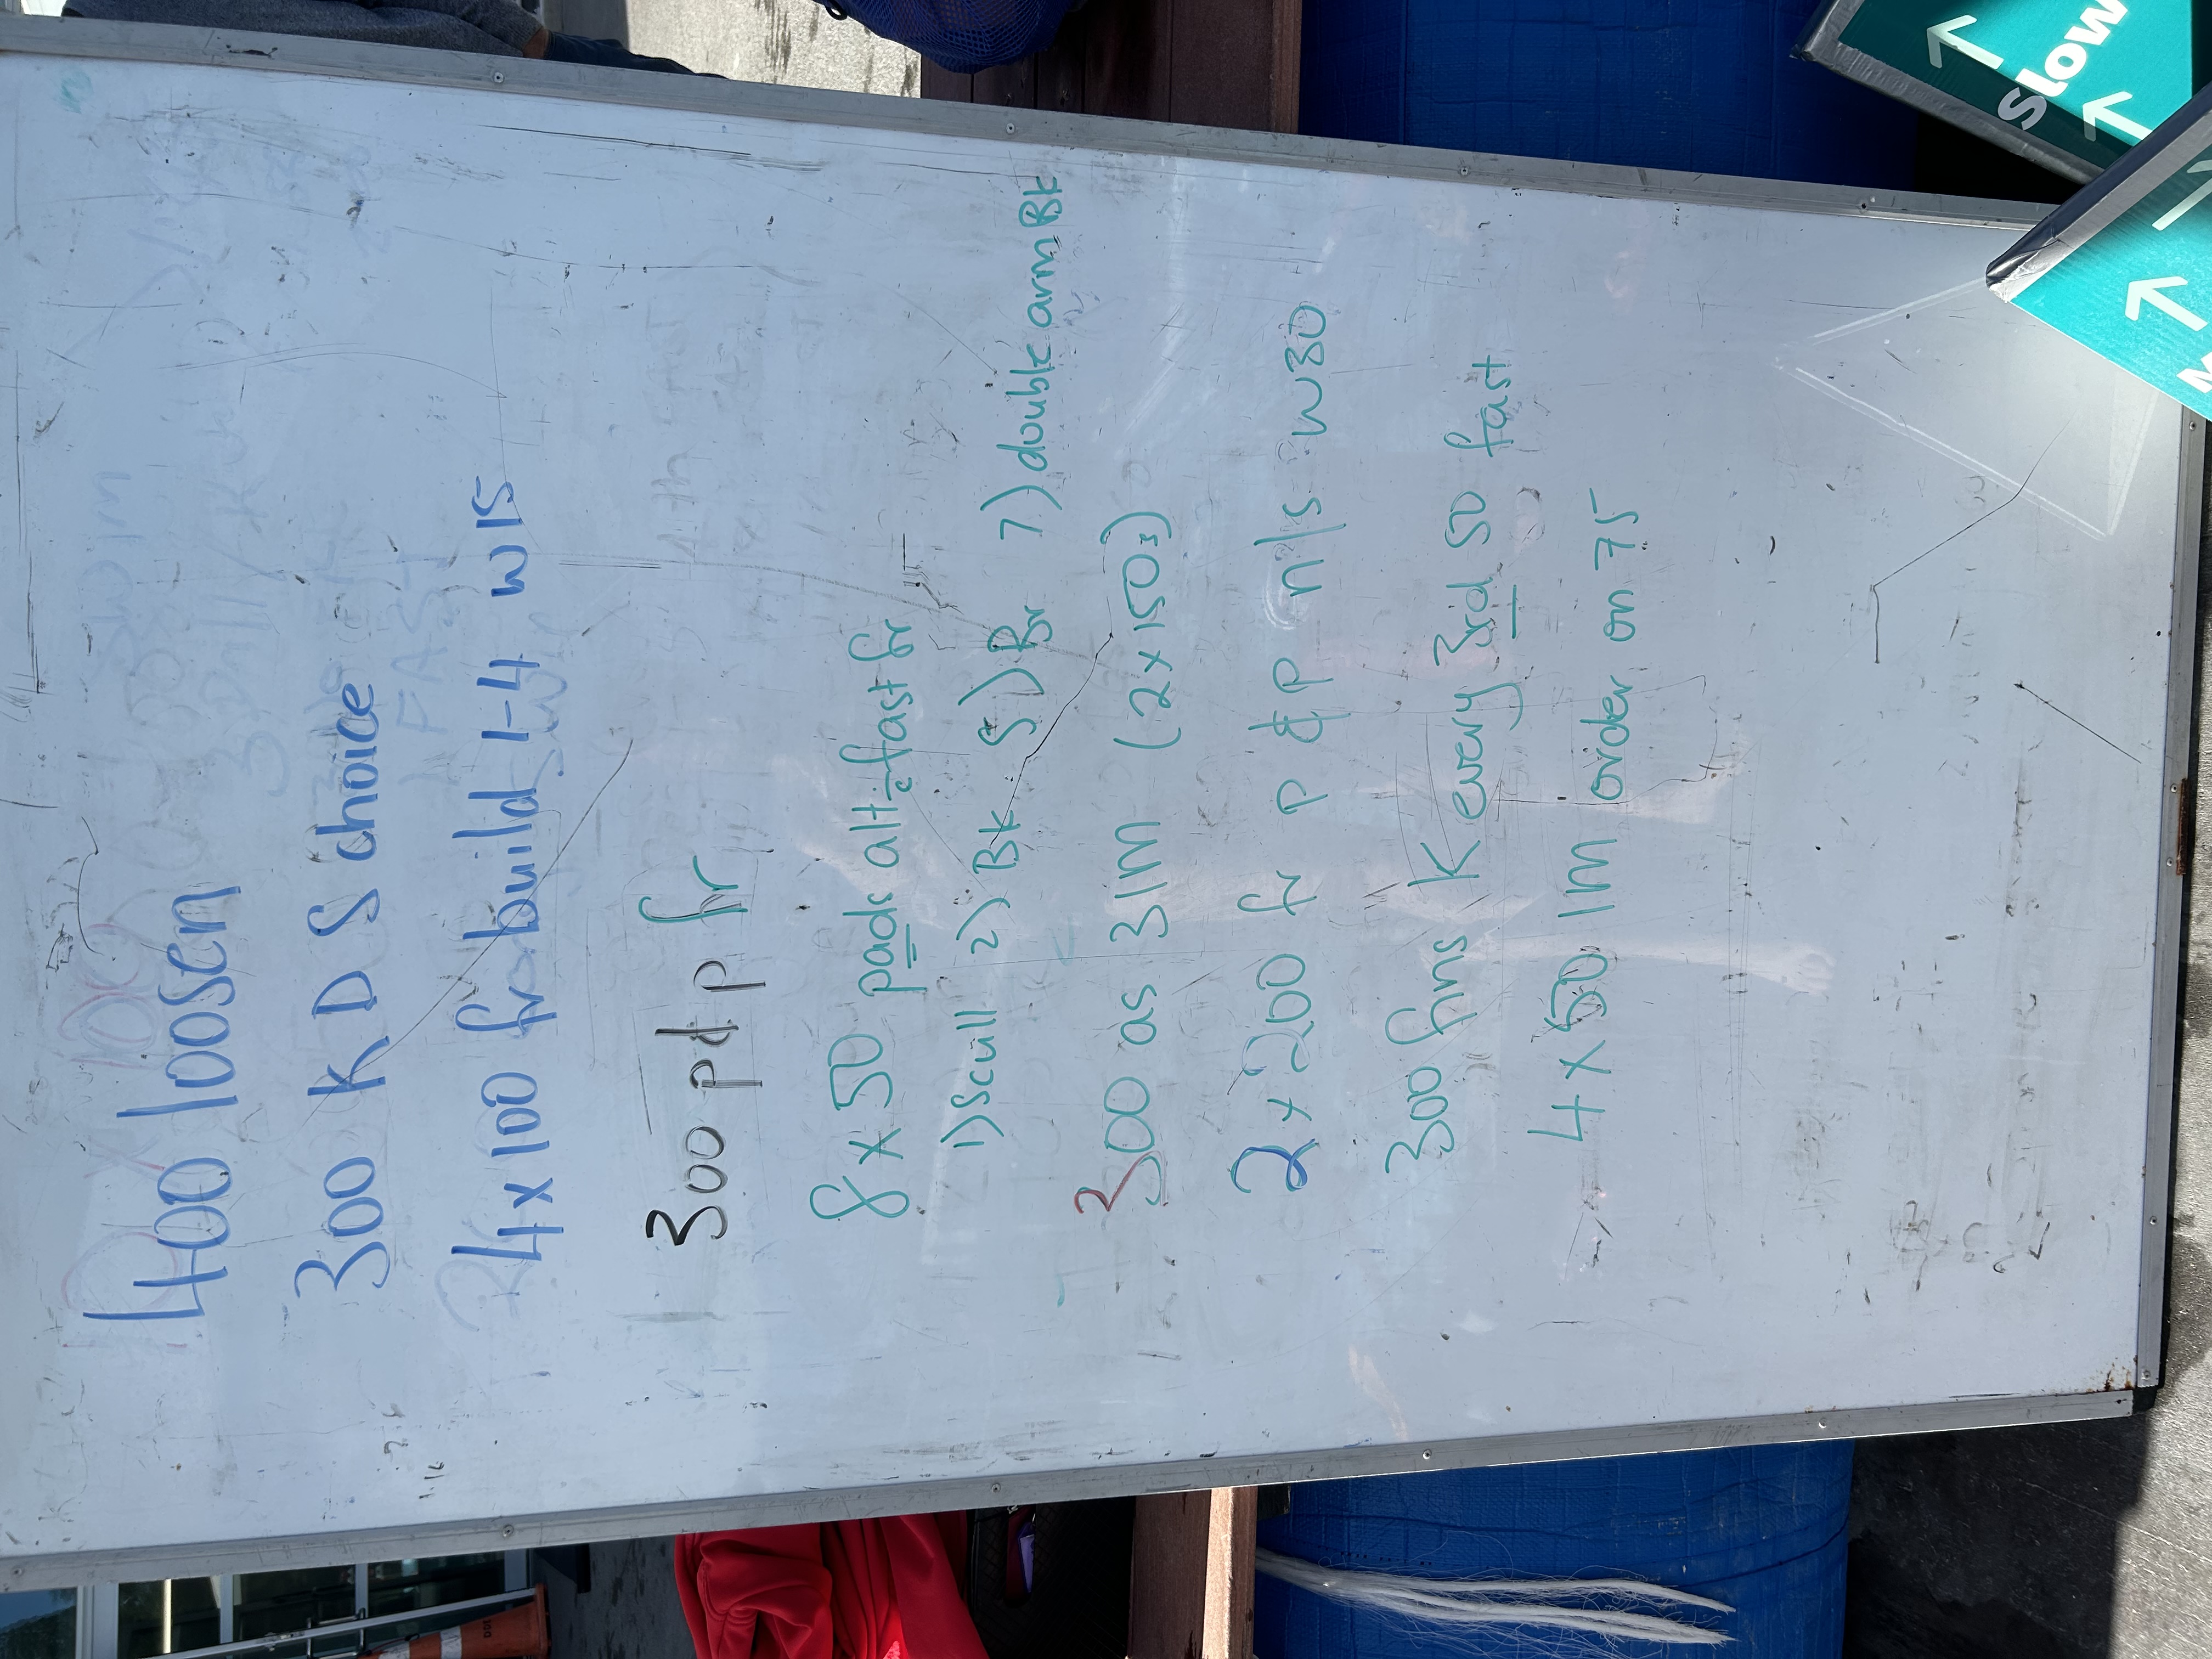 400 loosen
300 K D S choice
4x100 fr build 1-4 w15
300 p&p fr
8 x 50 pads alt fast fr
1) scull 2) Bk 5) Br 7) double arm Bk
300 as 3IM (2x150s)
2 x 200 fr p &p n/s w30
300 fins K every 3rd 50 fast
4 x 50 IM order on 75
Slow